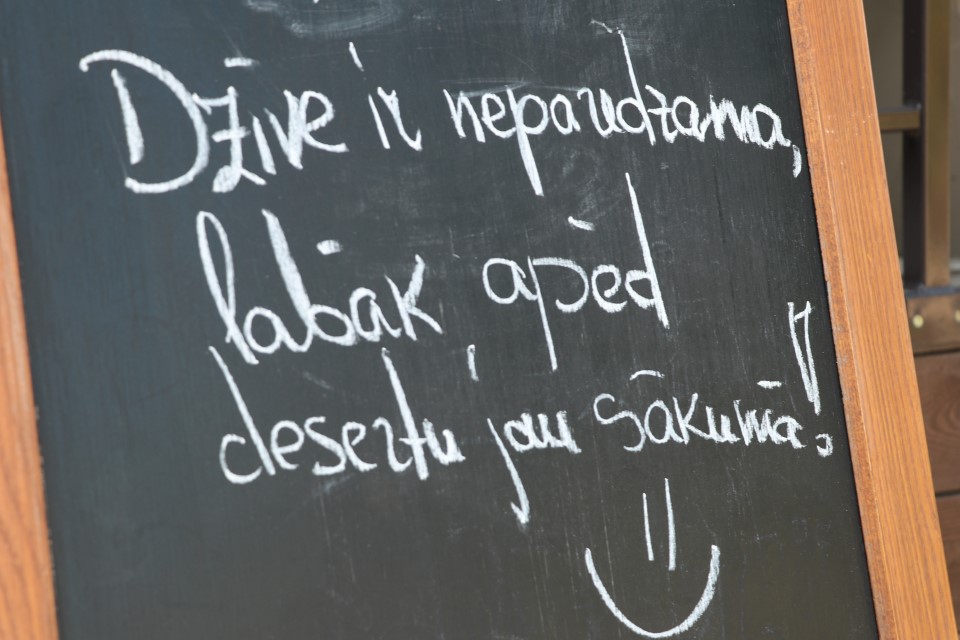 Dzīve ir neparedzama,
labāk apēd
desertu jau sākumā!